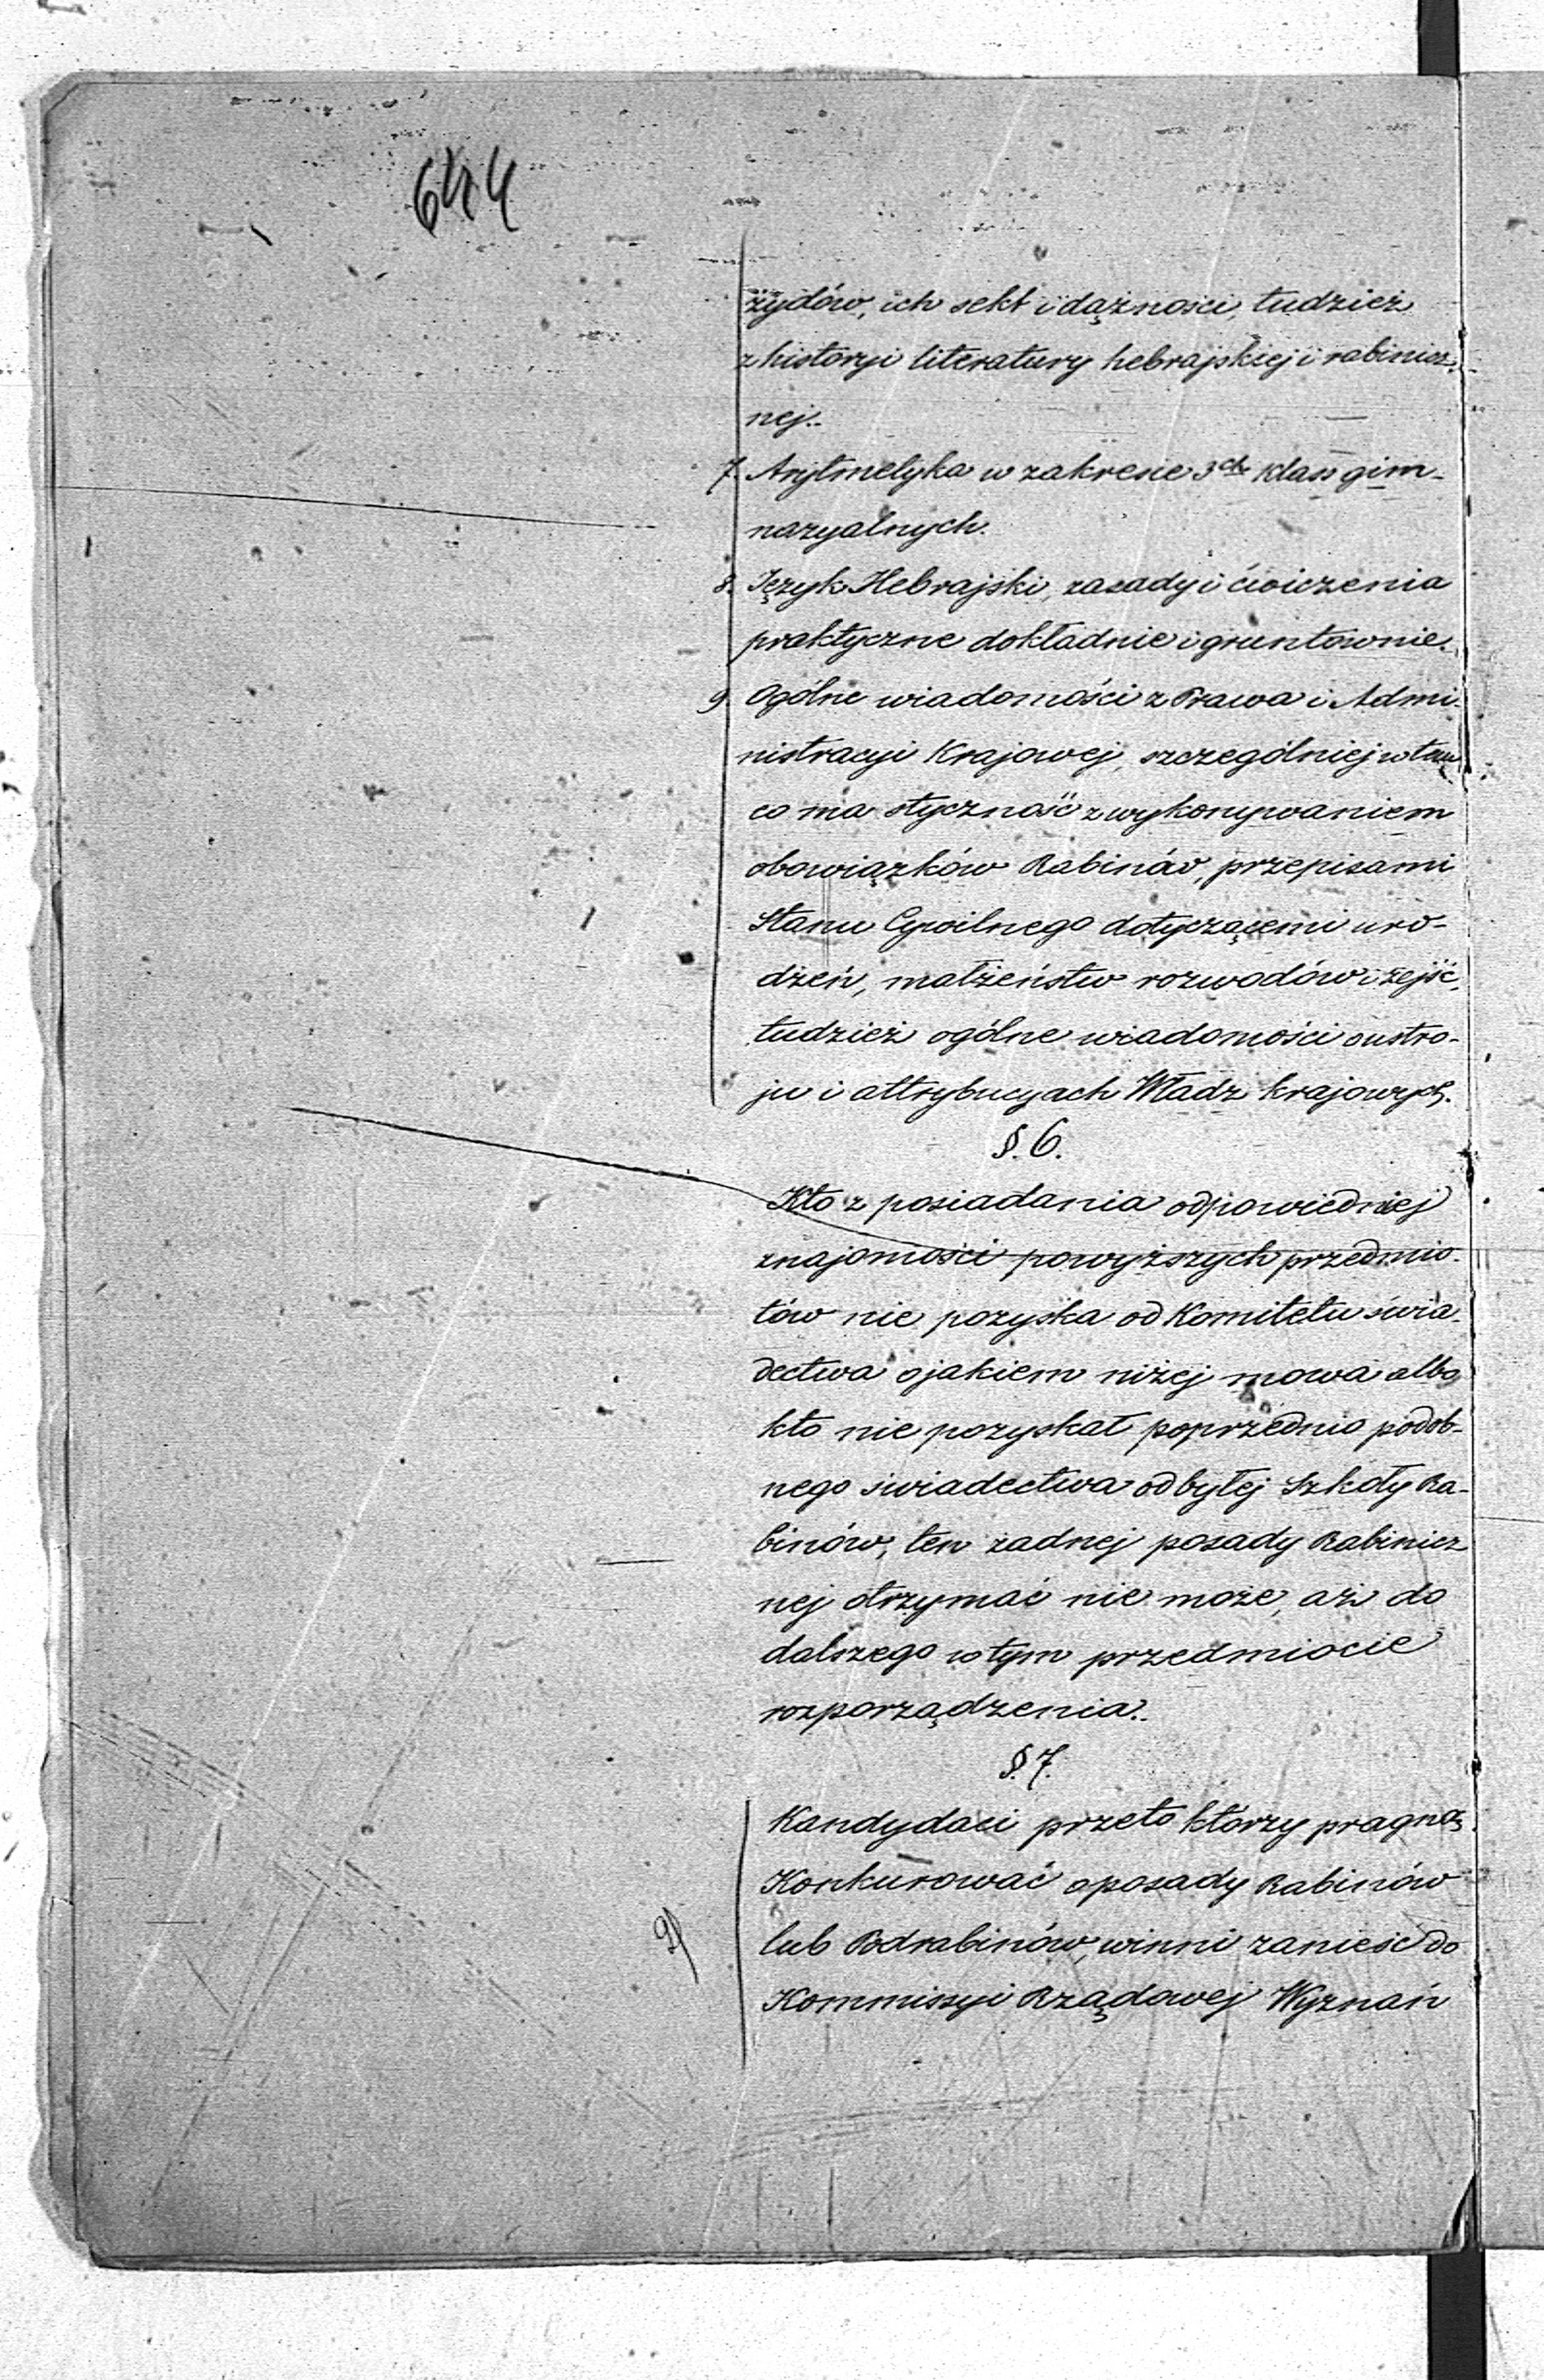 644
żydów, ich sekt i dążności, tudzież
z historyi literatury hebrajskiej i rabinicz-
nej.
7. Arytmetyka w zakresie 3ch klass gim-
nazyalnych.
8. Język Hebrajski, zasady i ćwiczenia
praktyczne dokładnie i gruntownie.
9. Ogólne wiadomości z Prawa i Admi-
nistracyi Krajowej, szczególniej w tem
co ma styczność z wykonywaniem
obowiązków Rabinów, przepisami
Stanu Cywilnego dotyczącemi uro-
dzeń, małżeństw rozwodów i zejść,
tudzież ogólne wiadomości o ustro-
ju i attrybucyach Władz krajowych.
§. 6.
Kto z posiadania odpowiedniej
znajomości powyższych przedmio-
tów nie pozyska od Komitetu świa-
dectwa o jakiem niżej mowa albo
kto nie pozyskał poprzednio podob-
nego świadectwa od byłej Szkoły Ra-
binów, ten żadnej posady Rabinicz
nej otrzymać nie może, aż do
dalszego w tym przedmiocie
rozporządzenia.
§. 7.
Kandydaci przeto którzy pragną
Konkurować o posady Rabinów
lub Podrabinów, winni zanieść do
Kommissyi Rządowej Wyznań